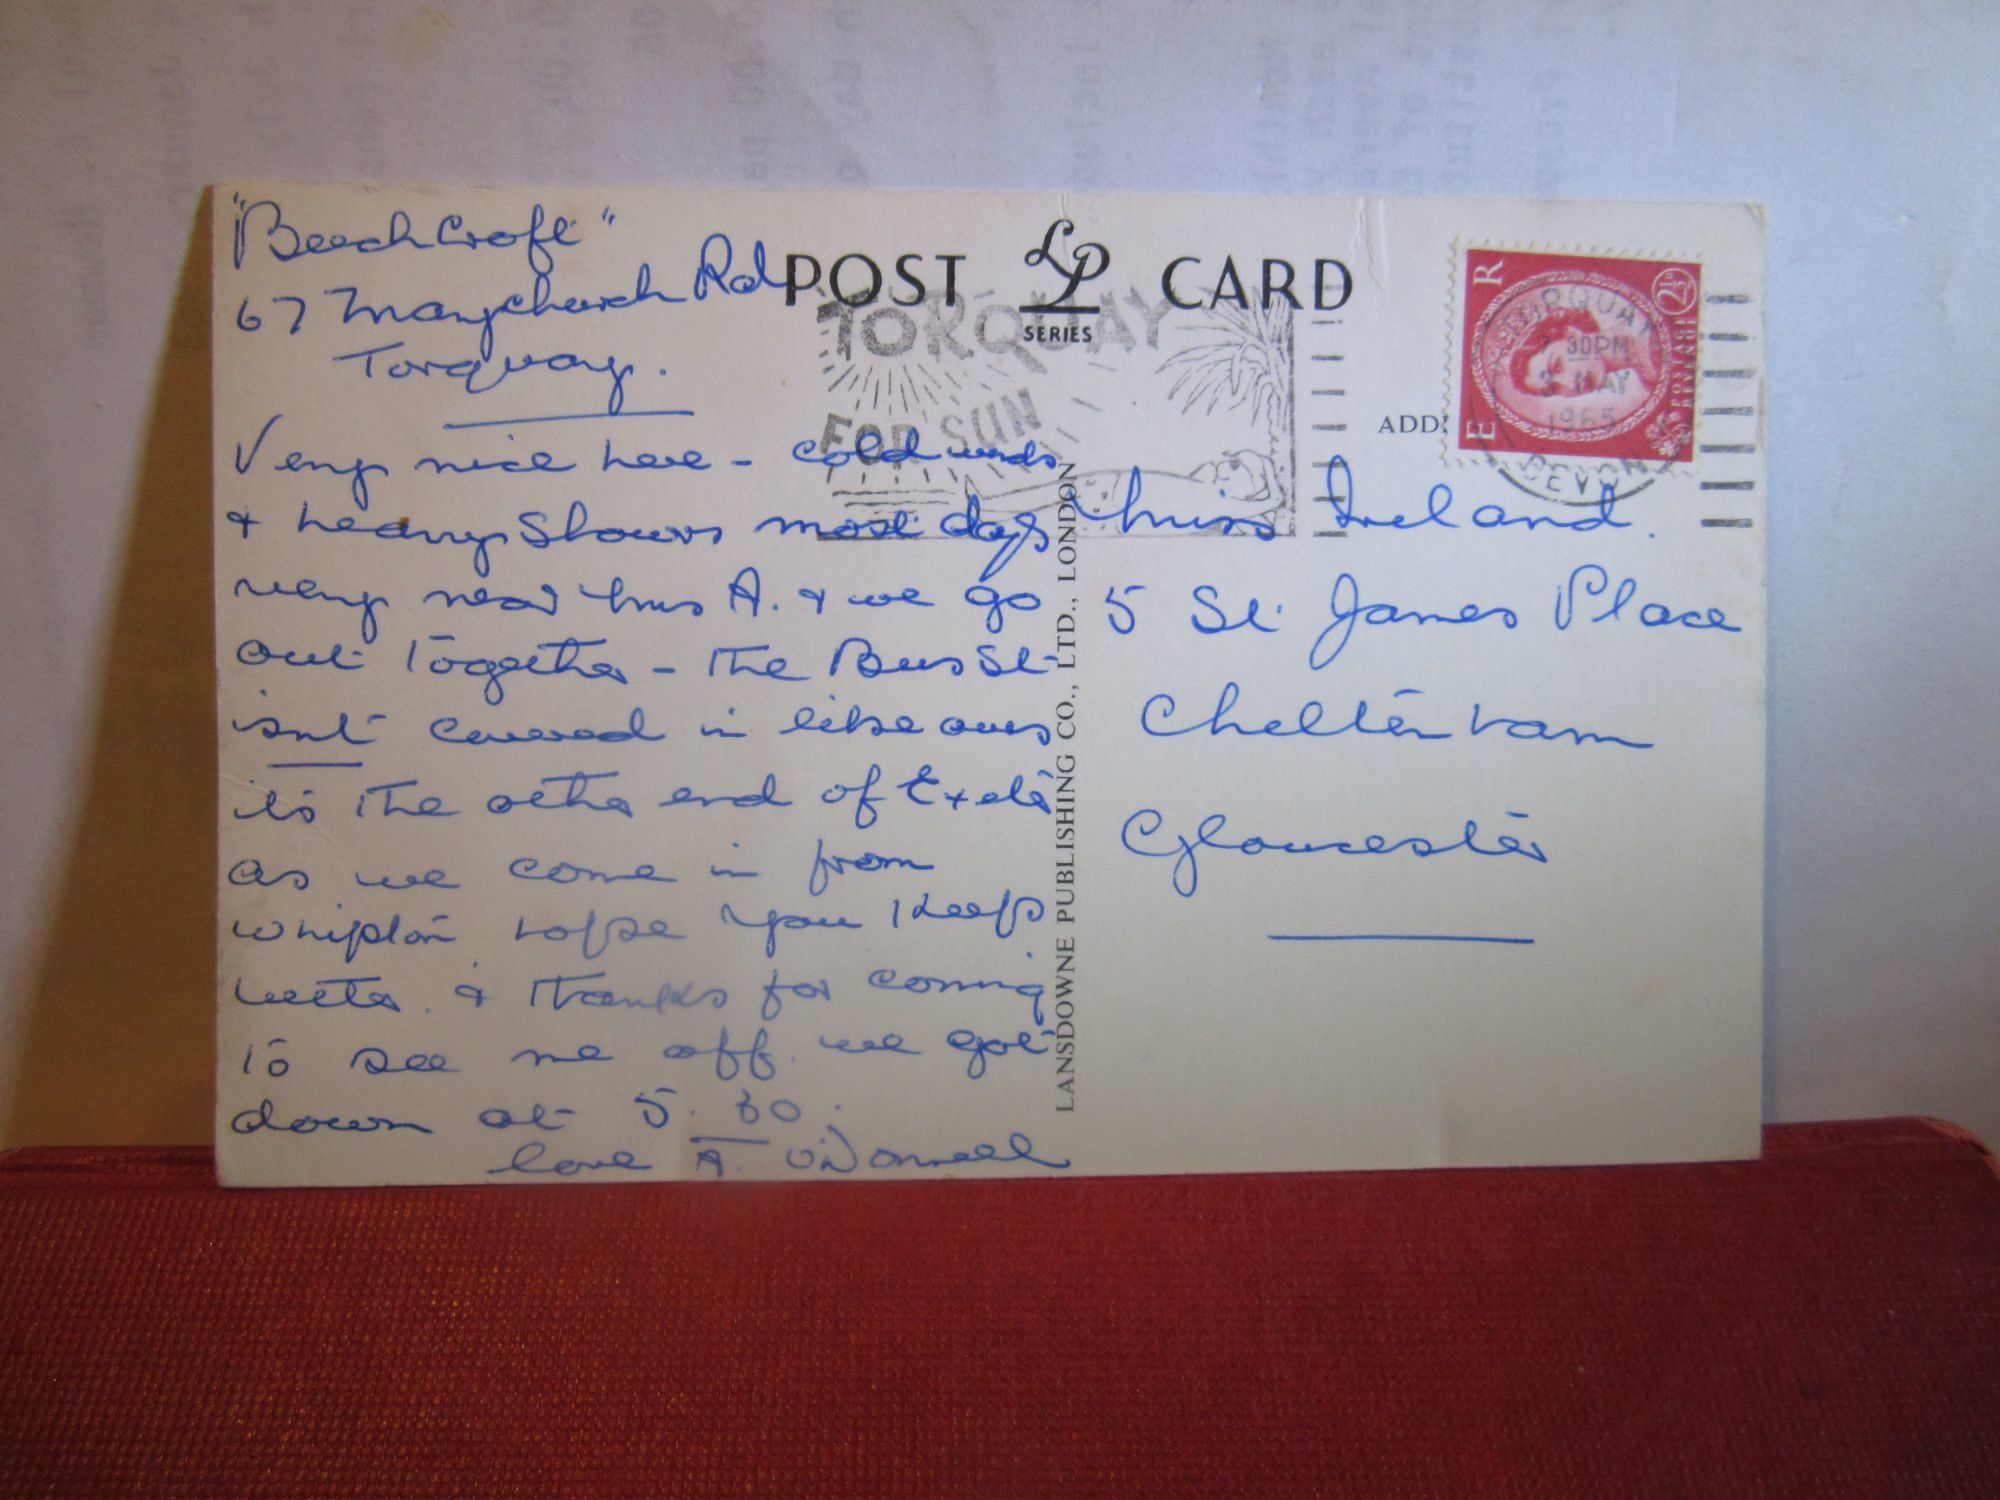 "Beechcroft"
67 Marychurch Rd
Torquay.
Very nice here - cold winds
& heavy showrs most days
very near Mrs A. & we go
out Together - The Bus St-
isnt covered in like ours
its The other end of Exeter
as we come in from
Whipton hope you Keep
better. & Thanks for coming
To see me off. we got
down at 5.30.
love A. O'Donnell
POST CARD
LP
SERIES
TORQUAY
FOR SUN
ADD
E R
2½D
POSTAGE
REVENUE
TORQUAY
30PM
MAY
1965
DEVON
LANSDOWNE PUBLISHING CO., LTD., LONDON
Miss Ireland.
5 St. James Place
Cheltenham
Gloucester